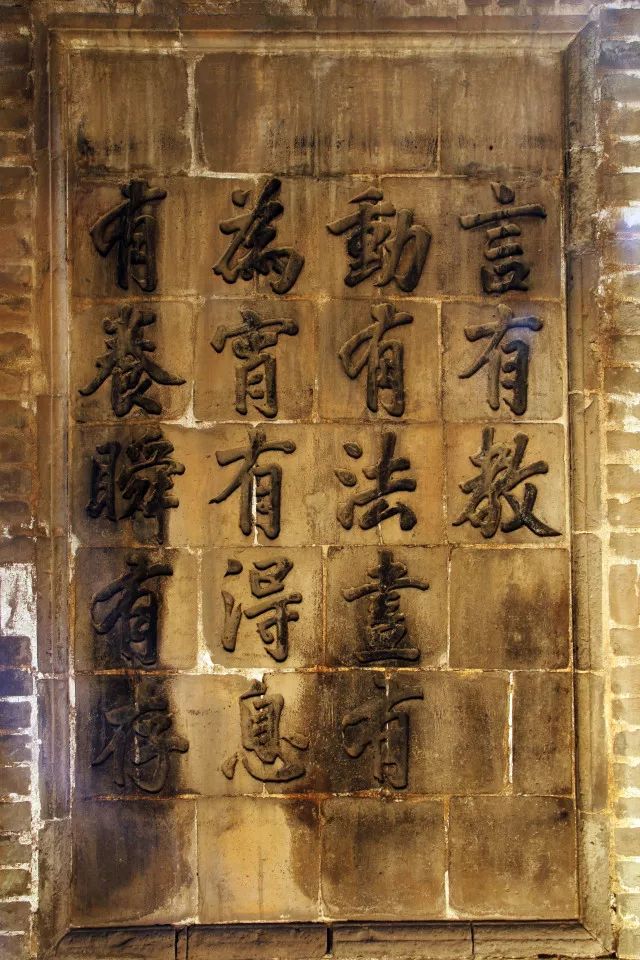 言有教
動有法晝有
為宵有得息
有養瞬有存